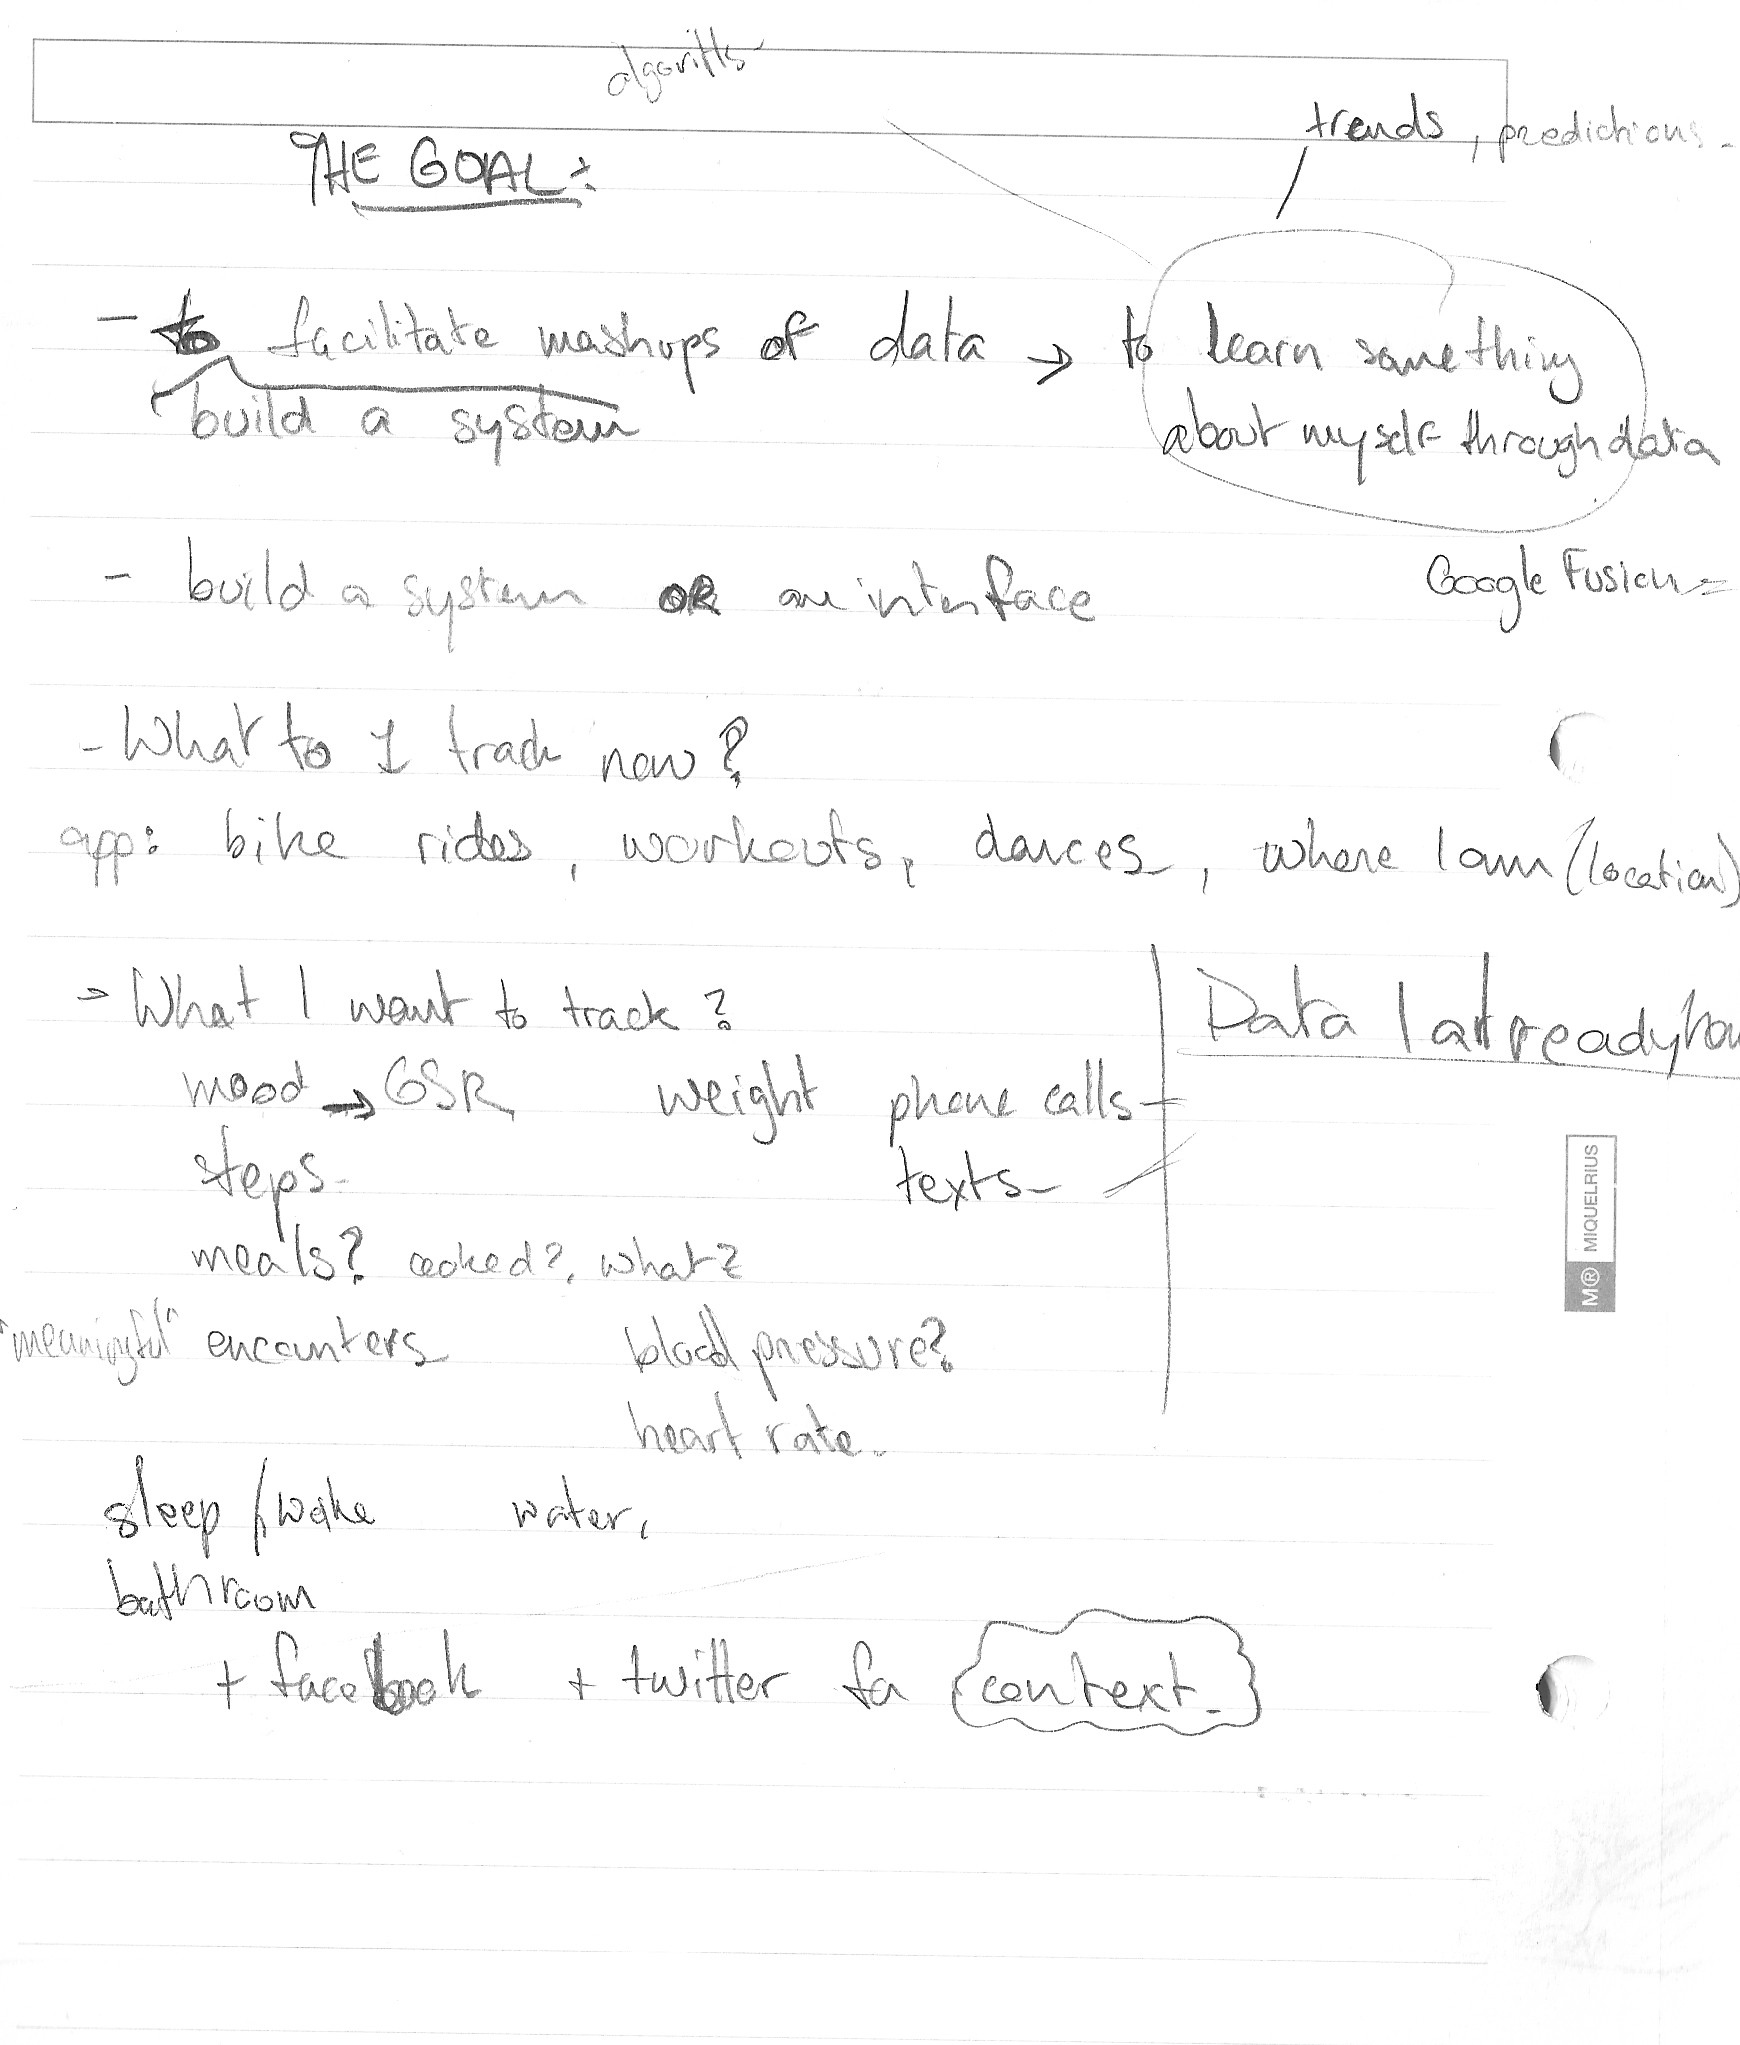 algoriths
trends, predictions.
THE GOAL:
- to facilitate mashups of data → to learn something
build a system
about myself through data
- build a system OR an interface
Google Fusion
- What to I track now?
app: bike rides, workouts, dances, where I am (location)
- What I want to track?
Data I already ha
mood → GSR weight phone calls
steps
texts
meals? cooked?, what?
"meaningful" encounters
blood pressure?
heart rate.
sleep / wake water,
bathroom
+ facebook + twitter fa context.
M® MIQUELRIUS